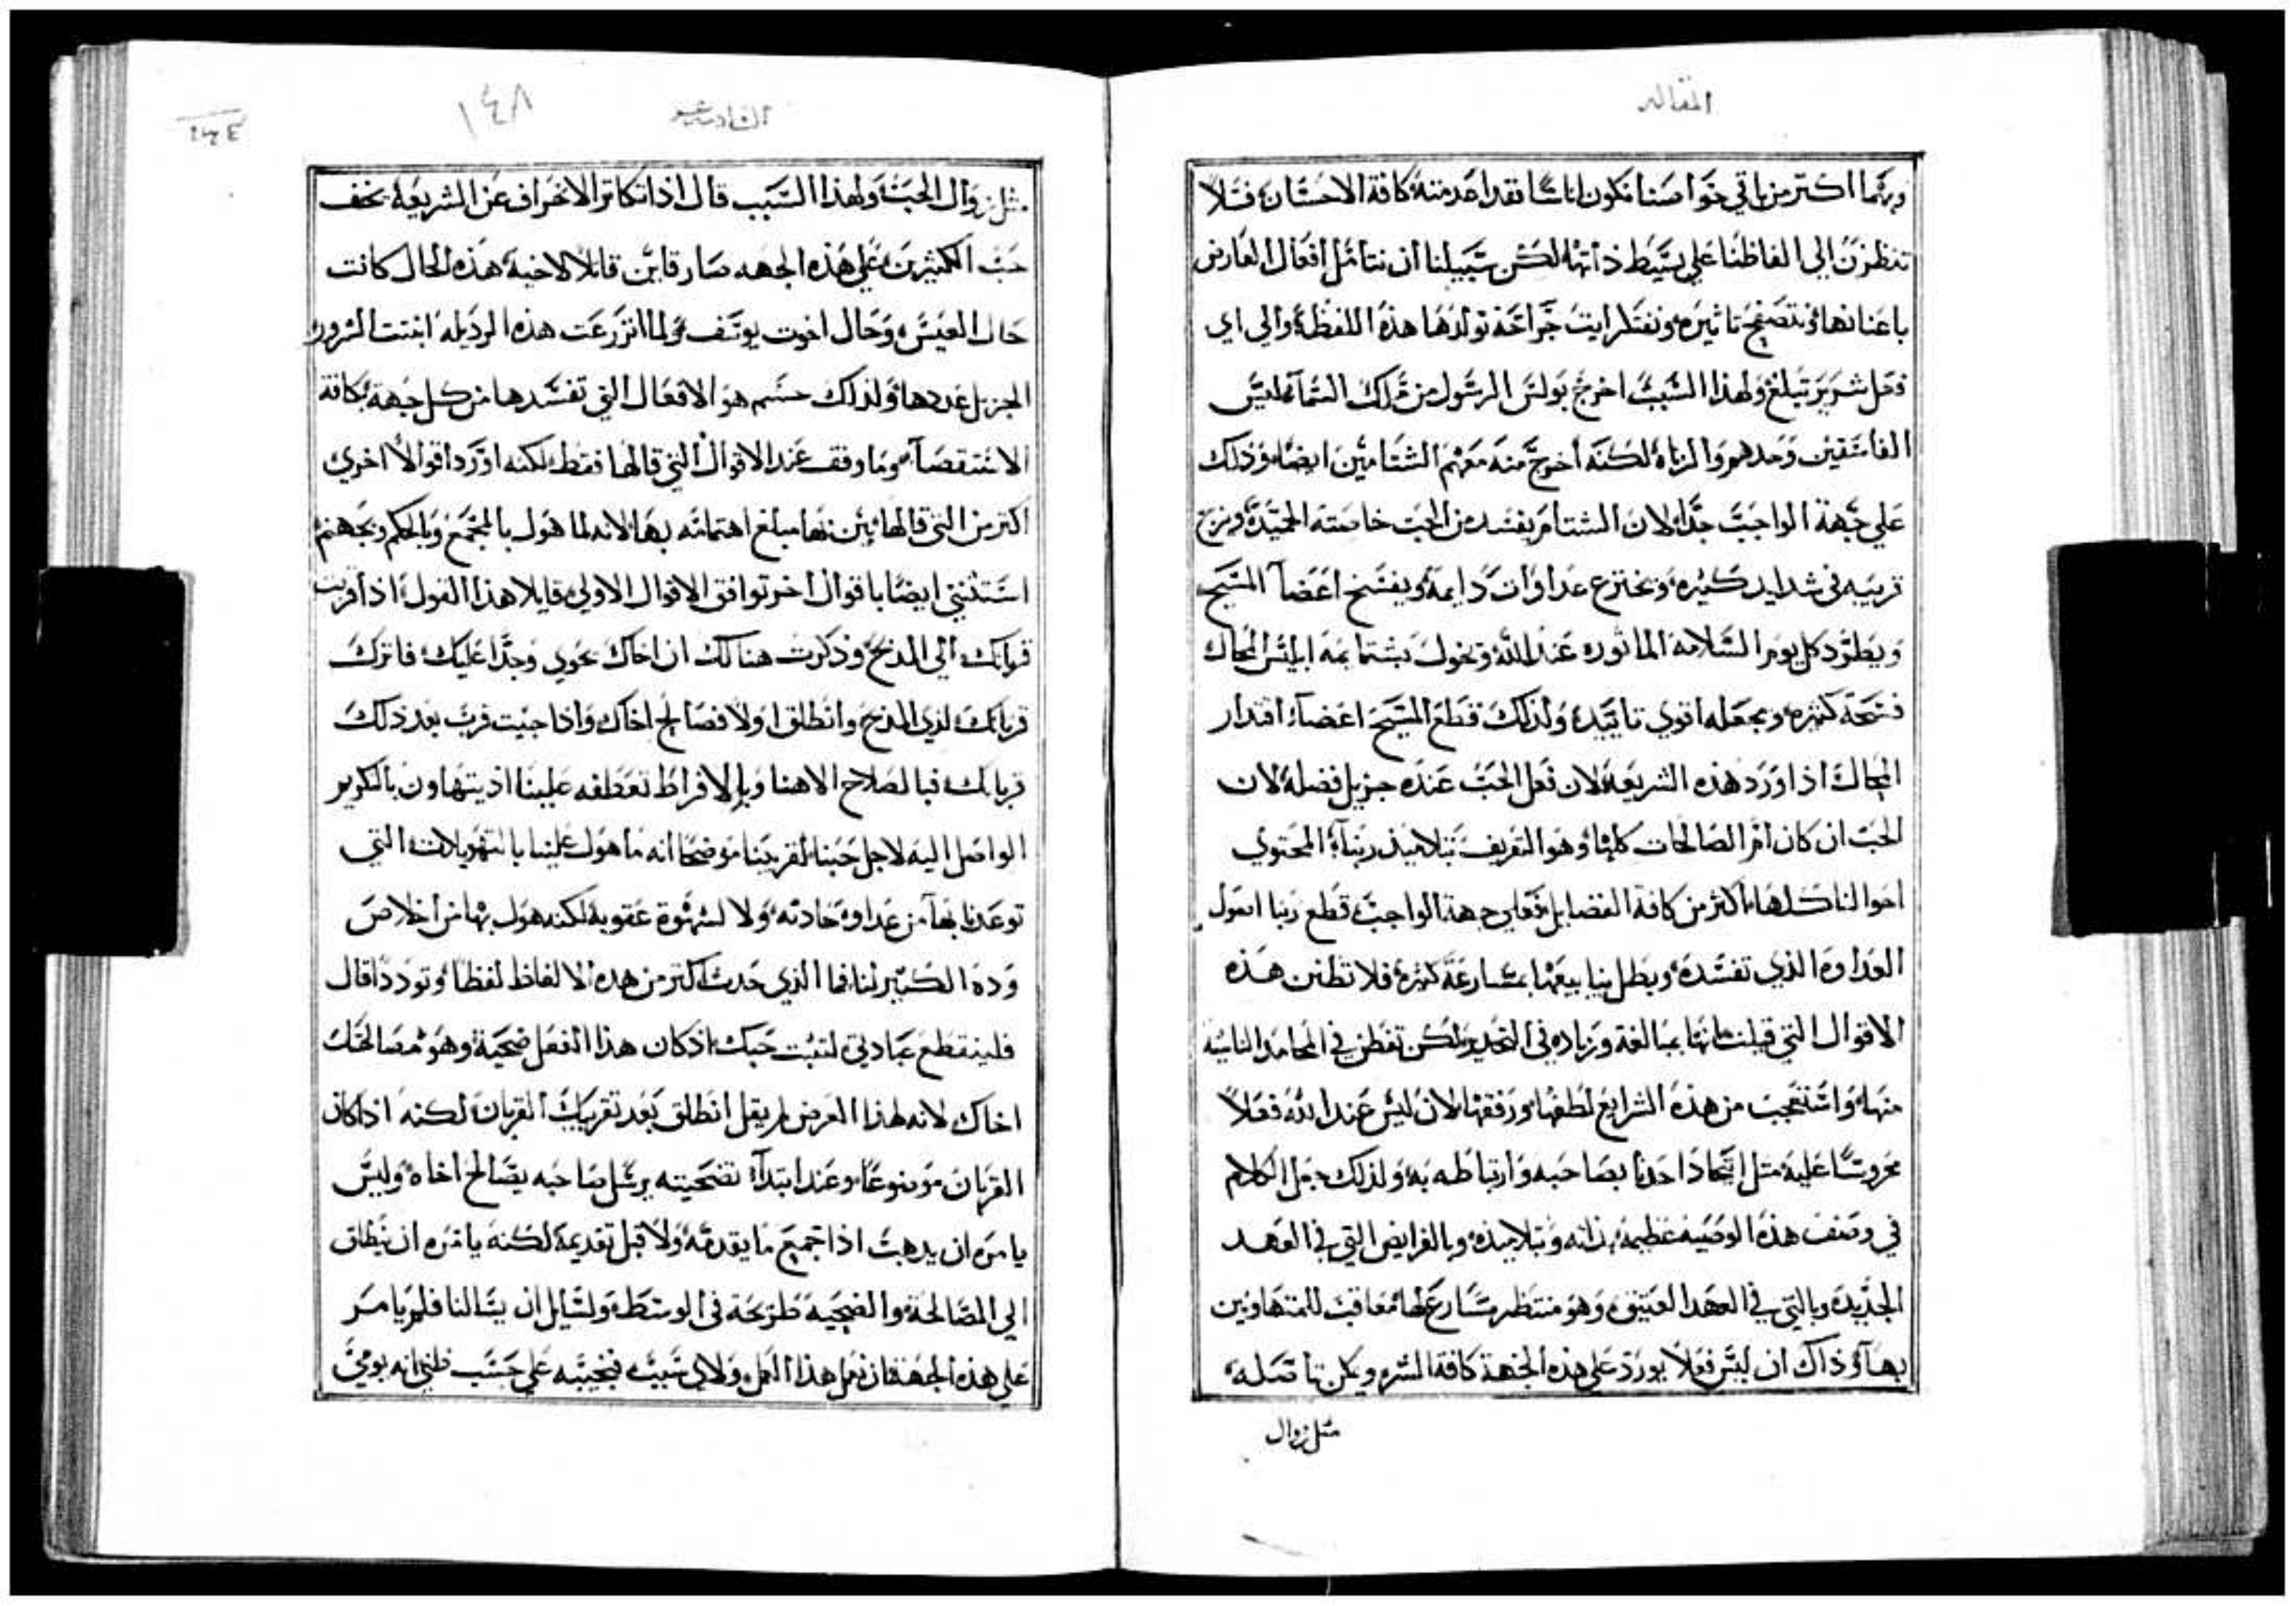 المقاله
وبهما اكتر من باقي خواصنا نكون اناسًا نقد اعدمته كافة الاحسان فلا
تنظرن الي الفاظنا علي بسيط ذاتها لكن سبيلنا ان نتامل افعال العارض
باعنانها ونتصفح تاثيره ونفتكر ايت جراحة تولدها هذه اللفظة والي اي
فعل شرير تبلغ ولهذا السبب اخرج بولس الرسول من ملك السما ليس
الفاسقين وحدهم والزناه لكنه اخرج منه معهم الشتامين ايضا وذلك
علي جهة الواجب جدا لان الشتام يفسد من الحب خاصته الجيده ويزج
قريبه في شدايد كثيره ويخترع عداوات دايمة ويفسخ اعضا المسيح
ويطرد كل يوم السلامه الماثوره عند الله ويخول بشتايمه ابليس المحال
فسحة كثيره ويجعله اقوي تاييدا ولذلك قطع المسيح اعضاء اقتدار
المحال اذ اورد هذه الشريعة لان فعل الحب عنده جزيل فضله لان
الحب ان كان ام الصالحات كلها وهو التعريف بتلاميذ ربنا المحتوي
احوالنا كلها اكثر من كافة الفضايل فعلي جهة الواجب قطع ربنا اصول
العداوه الذي تفسده وبطل ينابيعها بمسارعة كثيره فلا تظنن هذه
الاقوال التي قيلت انها مبالغة وزياده في التحذير لكن تفطن في المحامد الناتيه
منها واستعجب من هذه الشرايع لطفها ورفقها لان ليس عند الله فعلاً
محروسًا عليه مثل اتحاد احدنا بصاحبه وارتباطه به ولذلك جعل الكلام
في وصف هذه الوصيه عظيمة بذاته وبتلاميذه وبالفرايض التي في العهد
الجديده وبالتي في العهد العتيق وهو منتظر مسارع لها معاقب للمتهاونين
بها وذاك ان ليس فعلاً يورد علي هذه الجهة كافة الشر ويمكن تاصله
مثل زوال
السادسه عشر
١٤٨
مثل زوال الحب ولهذا السبب قال اذا تكاثر الانحراف عن الشريعة يخف
حب الكثيرين علي هذه الجهه صار قاين قاتلا لاخيه هذه الحال كانت
حال العيس وحال اخوت يوسف ولما انزرعت هذه الرذيله انبتت الشرور
الجزيل عددها ولذلك حسم هو الافعال التي تفسدها من كل جهة بكافة
الاستقصآ وما وقف عند الاقوال التي قالها فقط لكنه اورد اقوالاً اخري
اكتر من التي قالها يبين بها مبلغ اهتمامه بها لانه لما هول بالمجمع وبالحكم وبجهنم
استثني ايضا باقوال اخر توافق الاقوال الاولي قايلا هذا القول اذا قربت
قربانك الي المذبح وذكرت هنالك ان اخاك يحوي وجدا عليك فاترك
قربانك لدي المذبح وانطلق اولا فصالح اخاك واذا جيت قرب بعد ذلك
قربانك فيا لصلاح الاهنا ويا لافراط تعطفه علينا اذ يتهاون بالتكريم
الواصل اليه لاجل حبنا لقريبنا موضحا انه ما هول علينا بالتهويلات التي
توعدنا بها من عداوة حادثه ولا لشهوة عقوبة لكنه هول بها من اخلاص
وده الكثير لنا فما الذي حدث اكثر من هذه الالفاظ لفظا وتوددا قال
فلينقطع عبادتي لتثبت حبك اذ كان هذا الفعل ضحية وهو مصالحتك
اخاك لانه لهذا الغرض لم يقل انطلق بعد تقريبك القربان لكنه اذا كان
القربان موضوعًا وعند ابتدآ تضحيته يرسل صاحبه يصالح اخاه وليس
يامره ان يذهب اذا جميع ما يقدمه ولا قبل تقديمة لكنه يامره ان ينطلق
الي المصالحة والضحيه طريحة في الوسط ولسايل ان يسالنا فلم يامر
علي هذه الجهة فان نعمل هذا العمل ولاي سبب فنجيبه علي حسب ظني انه يومي